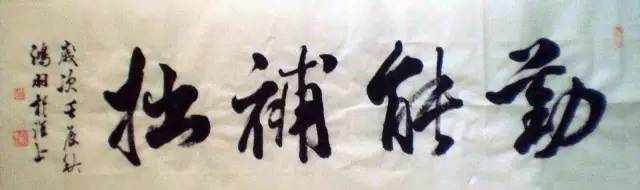 勤能補拙
歲次壬辰秋
鴻羽於淮上